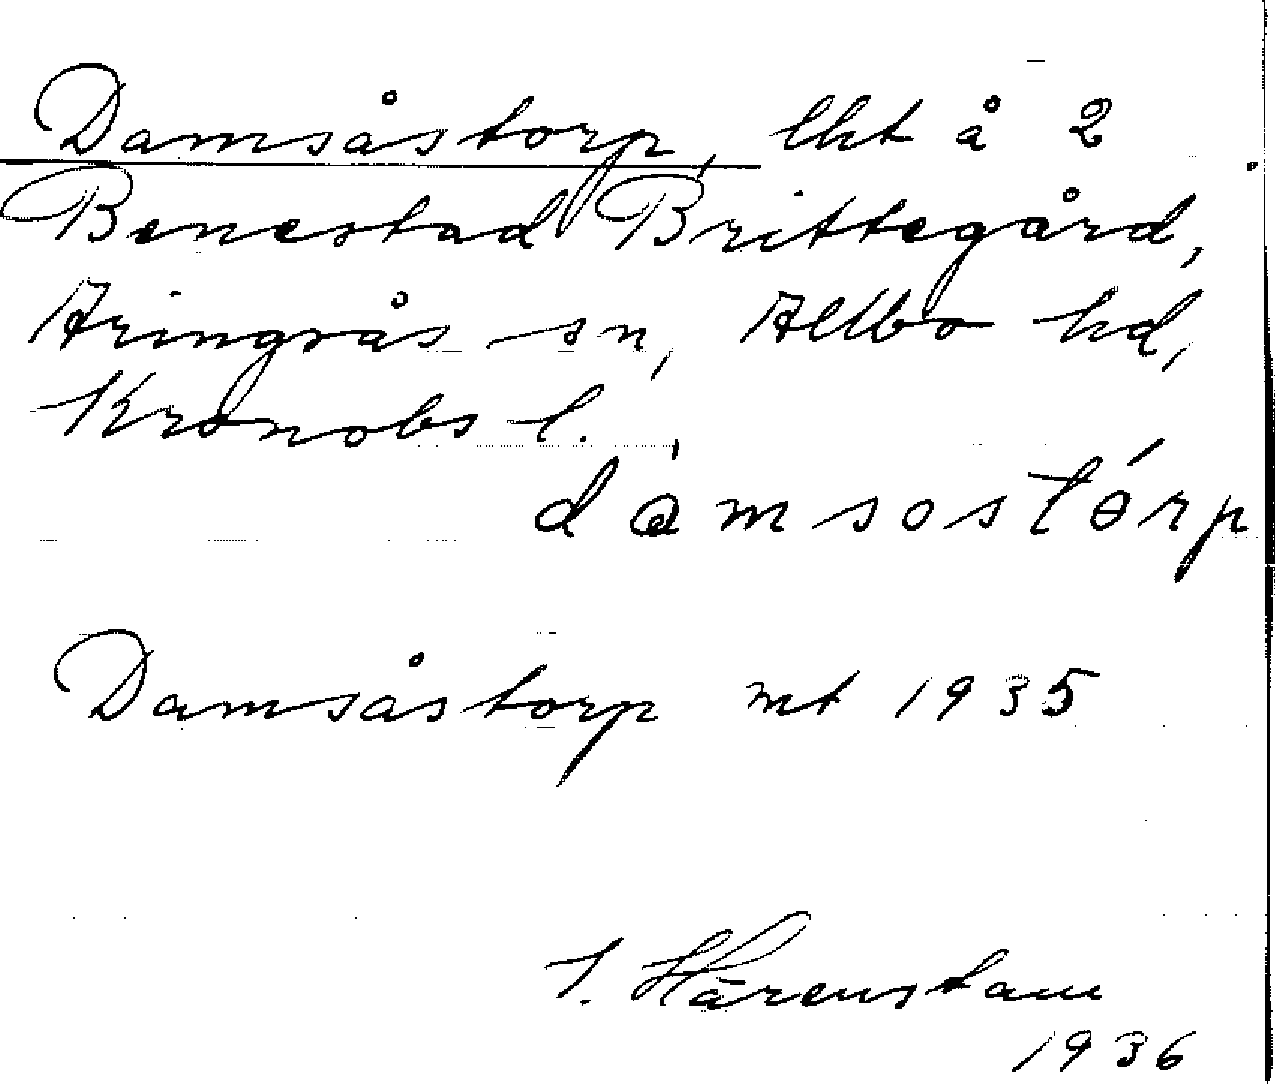 Damsåstorp, lht å 2
Benestad Brittegård,
Aringsås sn, Allbo hd,
Kronobs l.
dàmsostórp
Damsåstorp mt 1935
I. Härenstam
1936